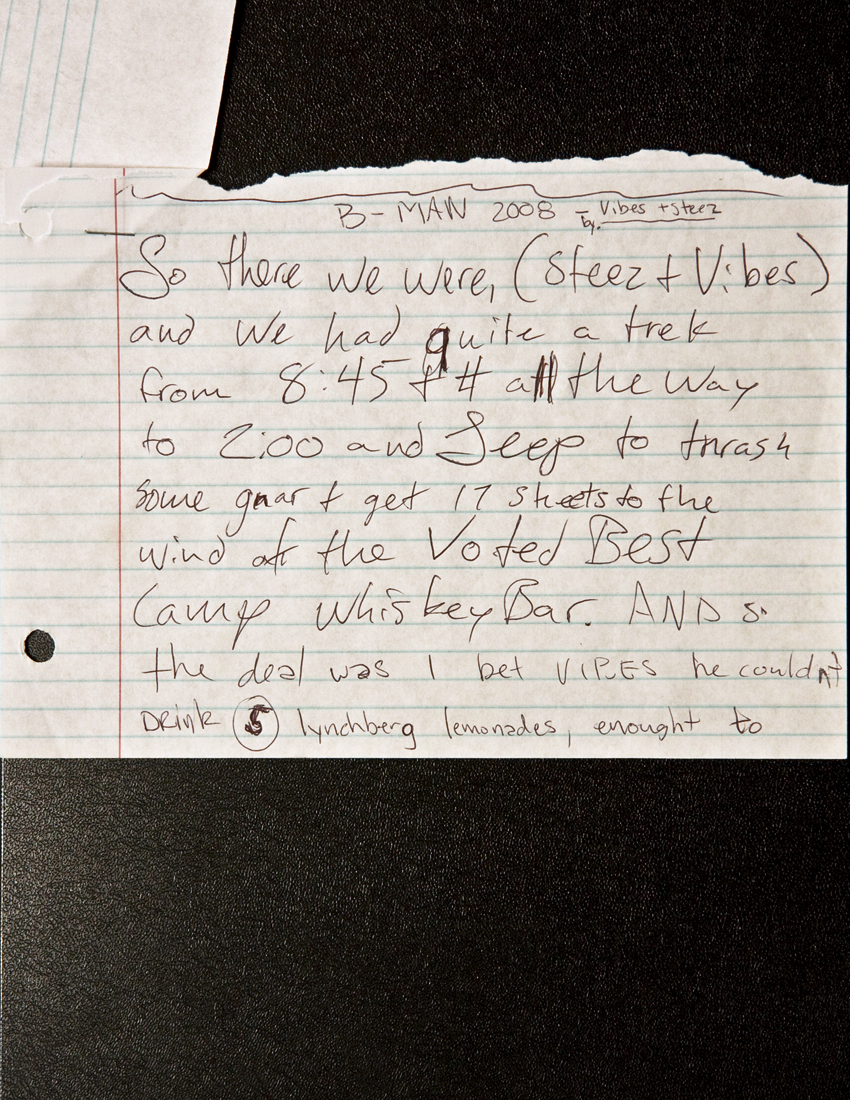 B-MAN 2008 - by. Vibes + Steez
So there we were, (Steez + Vibes)
and we had quite a trek
from 8:45 + # all the way
to 2:00 and Jeep to thrash
some gnar + get 17 sheets to the
wind at the Voted Best
Camp Whiskey Bar. AND so
the deal was I bet VIBES he couldn't
DRINK 5 lynchberg lemonades, enought to